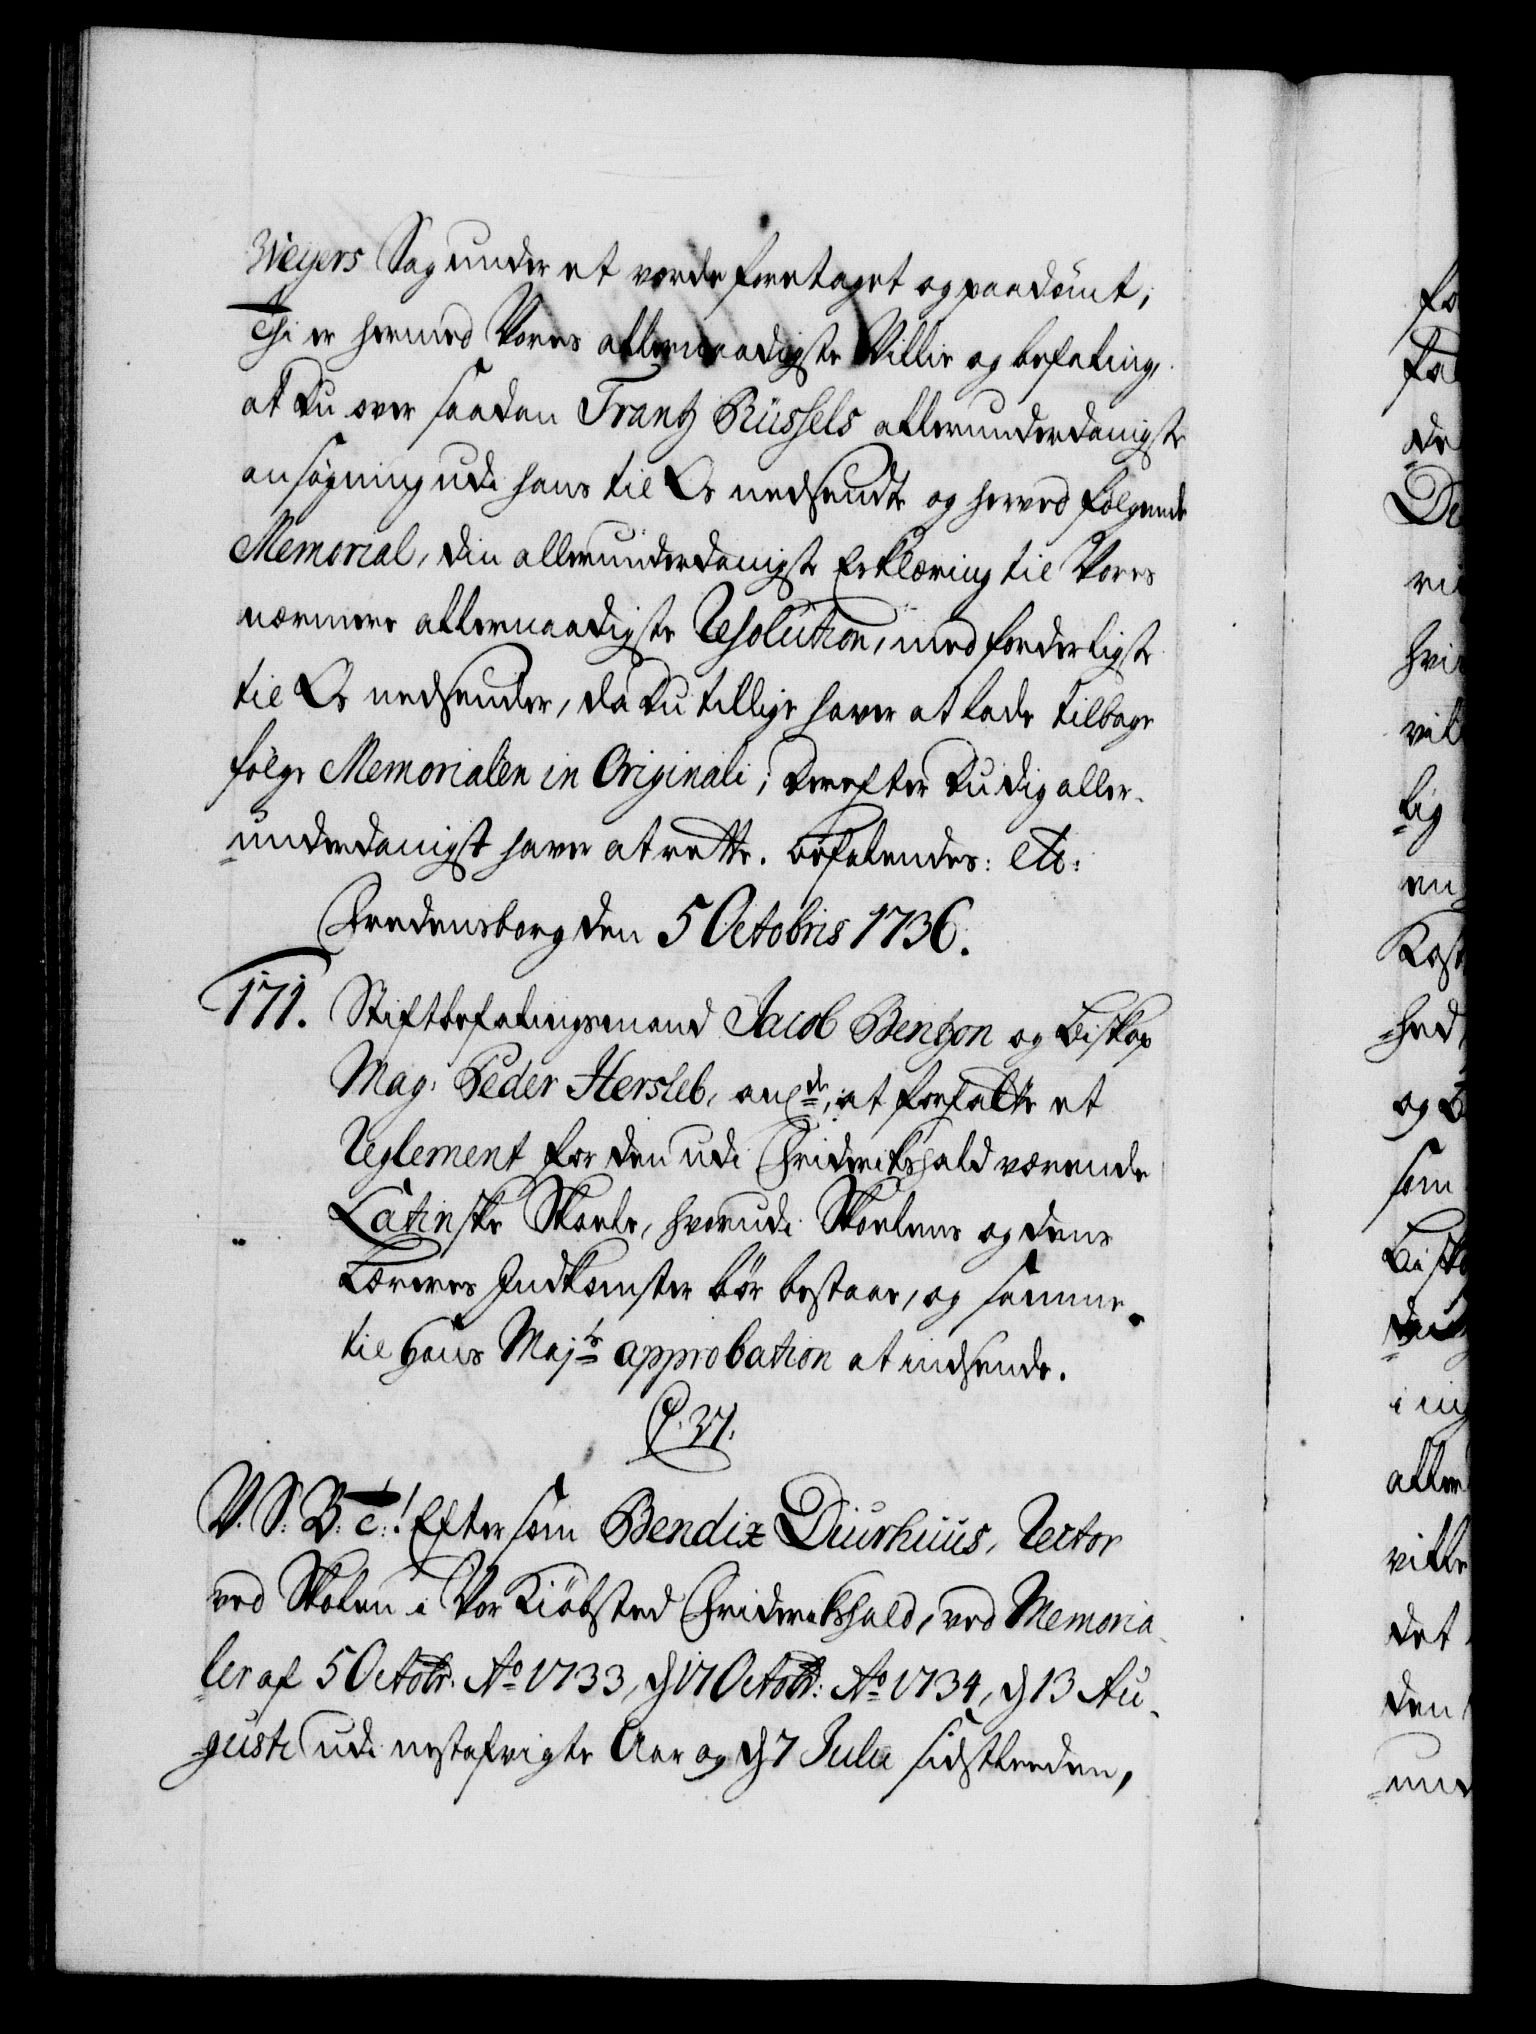 Weyers Sag under et vorde foretaget og paadömt;
Thi er hermed Vores allernaadigste Villie og befaling,
at du over saadan Frantz Rüssels allerunderdanigste
ansögning udi hans til Os nedsendte og herved følgende
Memorial, din allerunderdanigste Erklæring til Vores
nærmere allernaadigste Resolution, med forderligste
til Os nedsender, da du tillige haver at lade tilbage
følge Memorialen in Originali; Derefter du dig aller-
underdanigst haver at rette. befalendes: etc:
Fredensborg den 5 Octobris 1736.
171. Stiftbefalingsmand Jacob Bentzon og Biskop
Mag: Peder Hersleb, ang:de, at forfatte et
Reglement for den udi Friderikshald værende
Latinske Skoele, hvorudi Skoelens og dens
Læreres Indkomster bör bestaae, og samme
til Hans Maj:ts approbation at indsende.
C. VI.
V. S. B. etc:! Eftersom Bendix Diurhuus, Rector
ved Skolen i Vor Kiöbsted Friderikshald, ved Memoria-
ler af 5 Octobr. Ao 1733, d 17 Octobr: Ao 1734, d 13 Au-
gusti udi nestafvigte Aar og d 7 Julii sidstleeden,